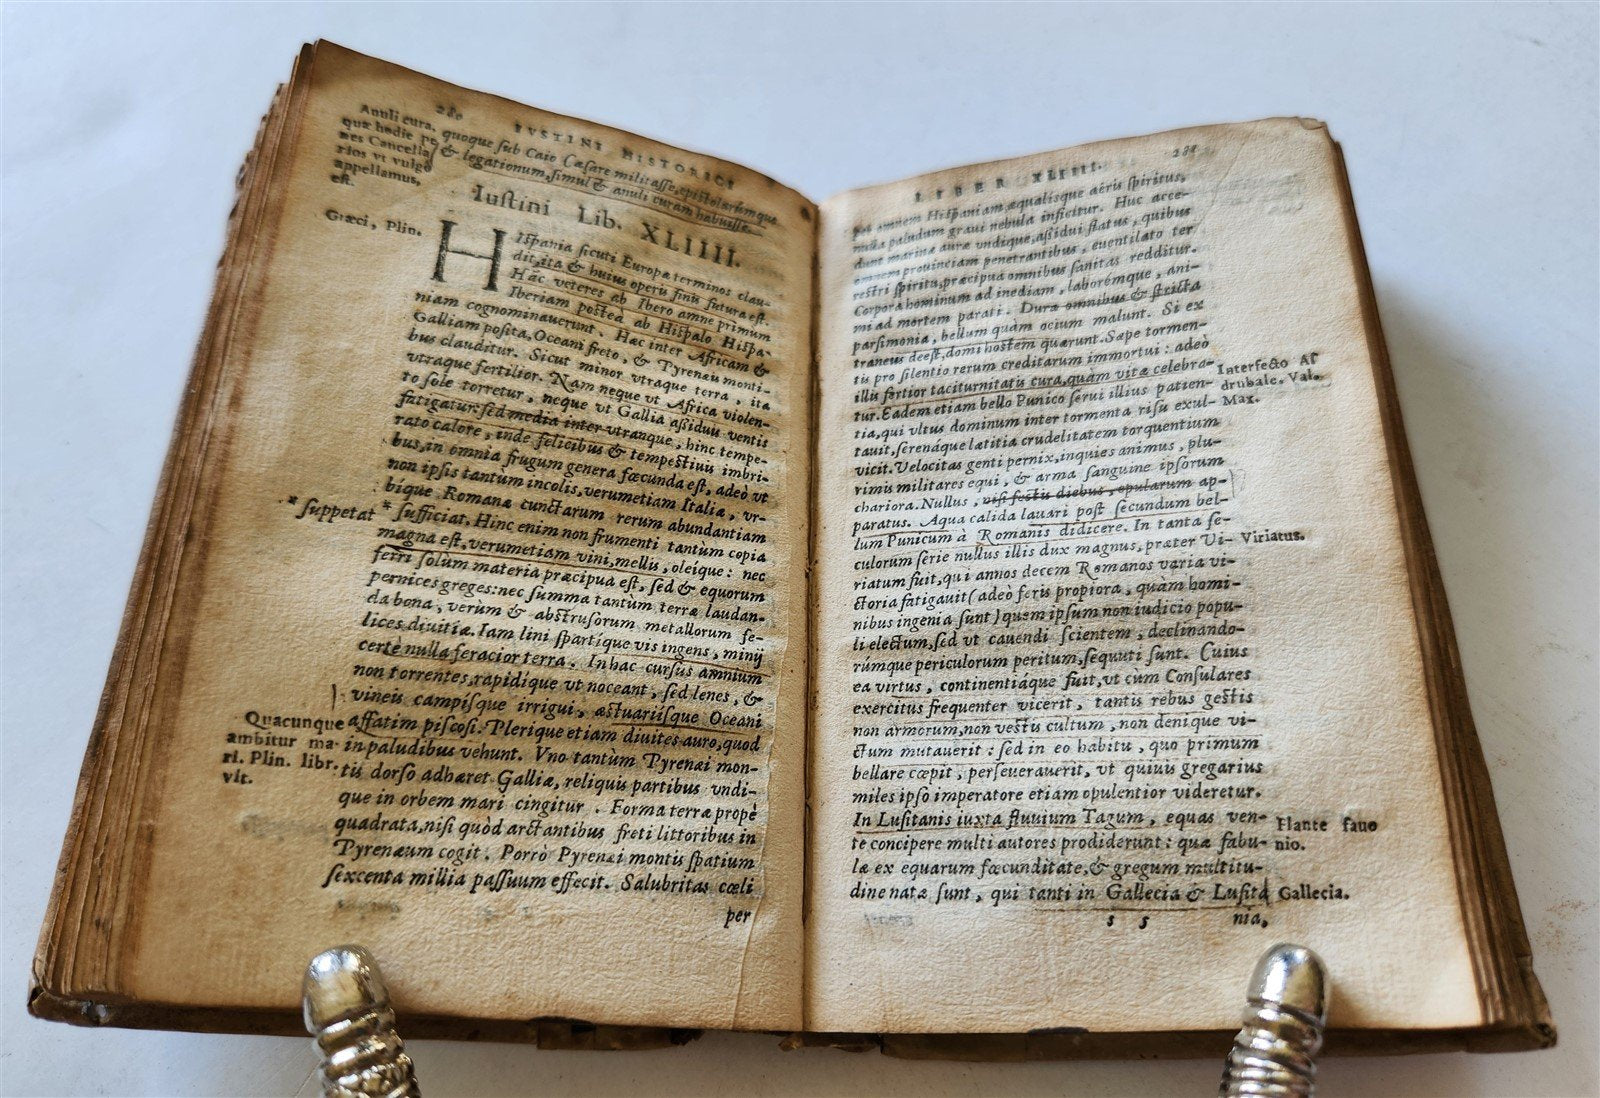 280 IVSTINI HISTORICI
Anuli cura.
quæ hodie pe
nes Cancella
rios vt vulgo
appellamus,
est.
quoque sub Caio Cæsare militasse, epistolarúmque
& legationum, simul & anuli curam habuisse.
Iustini Lib. XLIIII.
Græci, Plin.
HIspania sicuti Europæ terminos clau-
dit, ita & huius operis finis futura est.
Hãc veteres ab Ibero amne primum
Iberiam postea ab Hispalo Hispa-
niam cognominauerunt. Hæc inter Africam &
Galliam posita, Oceani freto, & Pyrenæis monti-
bus clauditur. Sicut minor vtraque terra, ita
vtraque fertilior. Nam neque vt Africa violen-
to sole torretur, neque vt Gallia aßiduis ventis
fatigatur: sed media inter vtranque, hinc tempe-
rato calore, inde felicibus & tempestiuis imbri-
bus, in omnia frugum genera fœcunda est, adeò vt
non ipsis tantùm incolis, verumetiam Italiæ, vr-
bíque Romanæ cunctarum rerum abundantiam
* suppetat
* sufficiat. Hinc enim non frumenti tantùm copia
magna est, verumetiam vini, mellis, oleique: nec
ferri solùm materia præcipua est, sed & equorum
pernices greges: nec summa tantùm terræ laudan-
da bona, verum & abstrusorum metallorum fe-
lices diuitiæ. Iam lini spartíque vis ingens, minij
certè nulla feracior terra. In hac cursus amnium
non torrentes, rapidíque vt noceant, sed lenes, &
vineis campísque irrigui, æstuariísque Oceani
affatim piscosi. Plerique etiam diuites auro, quod
in paludibus vehunt. Vno tantùm Pyrenæi mon-
Quacunque
ambitur ma-
ri. Plin. libr.
vit.
tis dorso adhæret Galliæ, reliquis partibus vndi-
que in orbem mari cingitur. Forma terræ propè
quadrata, nisi quòd arctantibus freti littoribus in
Pyrenæum cogit. Porrò Pyrenæi montis spatium
sexcenta millia passuum effecit. Salubritas cœli
per
LIBER XLIIII. 281
per omnem Hispaniam æqualisque aëris spiritus,
nulla paludum graui nebula inficitur. Huc acce-
dunt marinæ auræ vndique, aßidui flatus, quibus
omnem prouinciam penetrantibus, euentilato ter
restri spiritu, præcipua omnibus sanitas redditur.
Corpora hominum ad inediam, laborémque, ani-
mi ad mortem parati. Dura omnibus & stricta
parsimonia, bellum quàm ocium malunt. Si ex
traneus deest, domi hostem quærunt. Sæpe tormen-
tis pro silentio rerum creditarum immortui: adeò
illis fortior taciturnitatis cura, quàm vitæ celebra-
tur. Eadem etiam bello Punico serui illius patien-
tia, qui vltus dominum inter tormenta risu exul-
Interfecto As
drubale. Val.
Max.
tauit, serenáque lætitia crudelitatem torquentium
vicit. Velocitas genti pernix, inquies animus, plu-
rimis militares equi, & arma sanguine ipsorum
chariora. Nullus, nisi festis diebus, epularum ap-
paratus. Aqua calida lauari post secundum bel-
lum Punicum à Romanis didicere. In tanta se-
culorum serie nullus illis dux magnus, præter Vi-
Viriatus.
riatum fuit, qui annos decem Romanos varia vi-
ctoria fatigauit (adeò feris propiora, quàm homi-
nibus ingenia sunt) quem ipsum non iudicio popu-
li electum, sed vt cauendi scientem, declinando-
rúmque periculorum peritum, sequuti sunt. Cuius
ea virtus, continentiáque fuit, vt cum Consulares
exercitus frequenter vicerit, tantis rebus gestis
non armorum, non vestis cultum, non denique vi-
ctum mutauerit: sed in eo habitu, quo primum
bellare cœpit, perseuerauerit, vt quiuis gregarius
miles ipso imperatore etiam opulentior videretur.
In Lusitanis iuxta fluuium Tagum, equas ven-
Flante fauo
nio.
te concipere multi autores prodiderunt: quæ fabu-
læ ex equarum fœcunditate, & gregum multitu-
dine natæ sunt, qui tanti in Gallecia & Lusita
Gallecia.
s 5 nia,